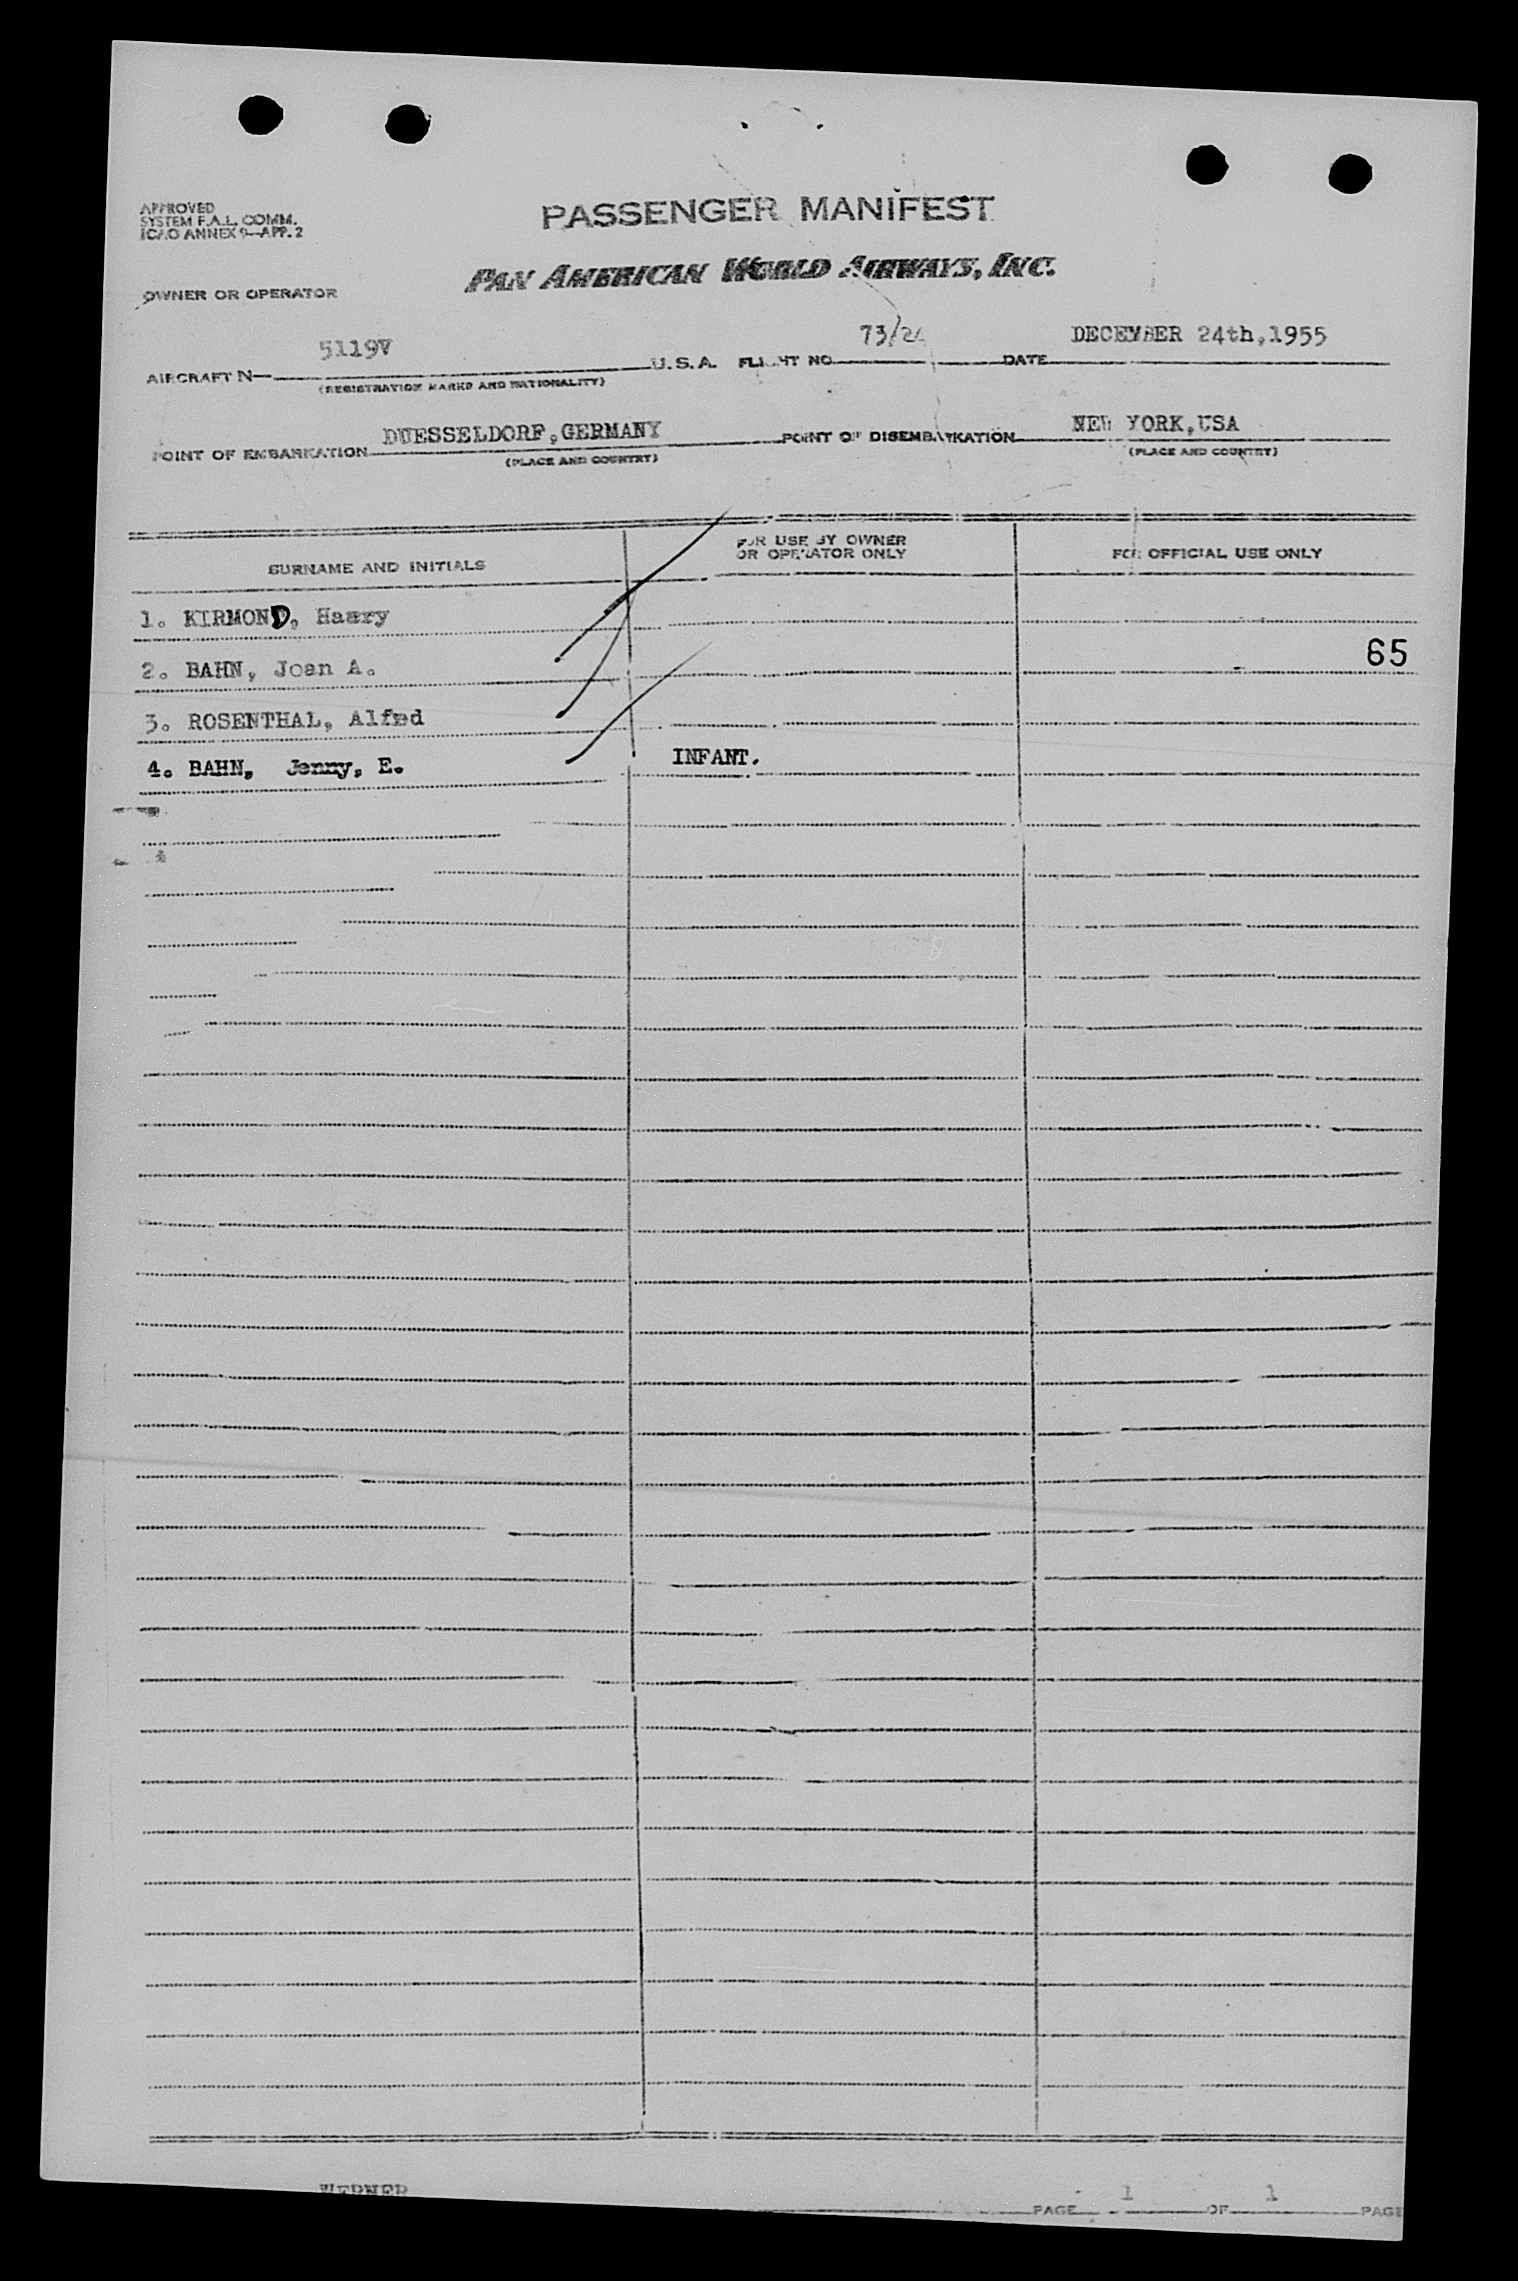 APPROVED
SYSTEM F.A.L. COMM.
ICAO ANNEX 9—APP. 2
PASSENGER MANIFEST
PAN AMERICAN WORLD AIRWAYS, INC.
OWNER OR OPERATOR
AIRCRAFT N— 5119V U.S.A. FLIGHT NO. 73/24 DATE DECEMBER 24th,1955
(REGISTRATION MARKS AND NATIONALITY)
POINT OF EMBARKATION DUESSELDORF,GERMANY POINT OF DISEMBARKATION NEW YORK,USA
(PLACE AND COUNTRY) (PLACE AND COUNTRY)
SURNAME AND INITIALS FOR USE BY OWNER OR OPERATOR ONLY FOR OFFICIAL USE ONLY
1. KIRMOND, Haary
65
2. BAHN, Joan A.
3. ROSENTHAL, Alfed
4. BAHN, Jenny, E. INFANT.
WERNER
PAGE 1 OF 1 PAGE